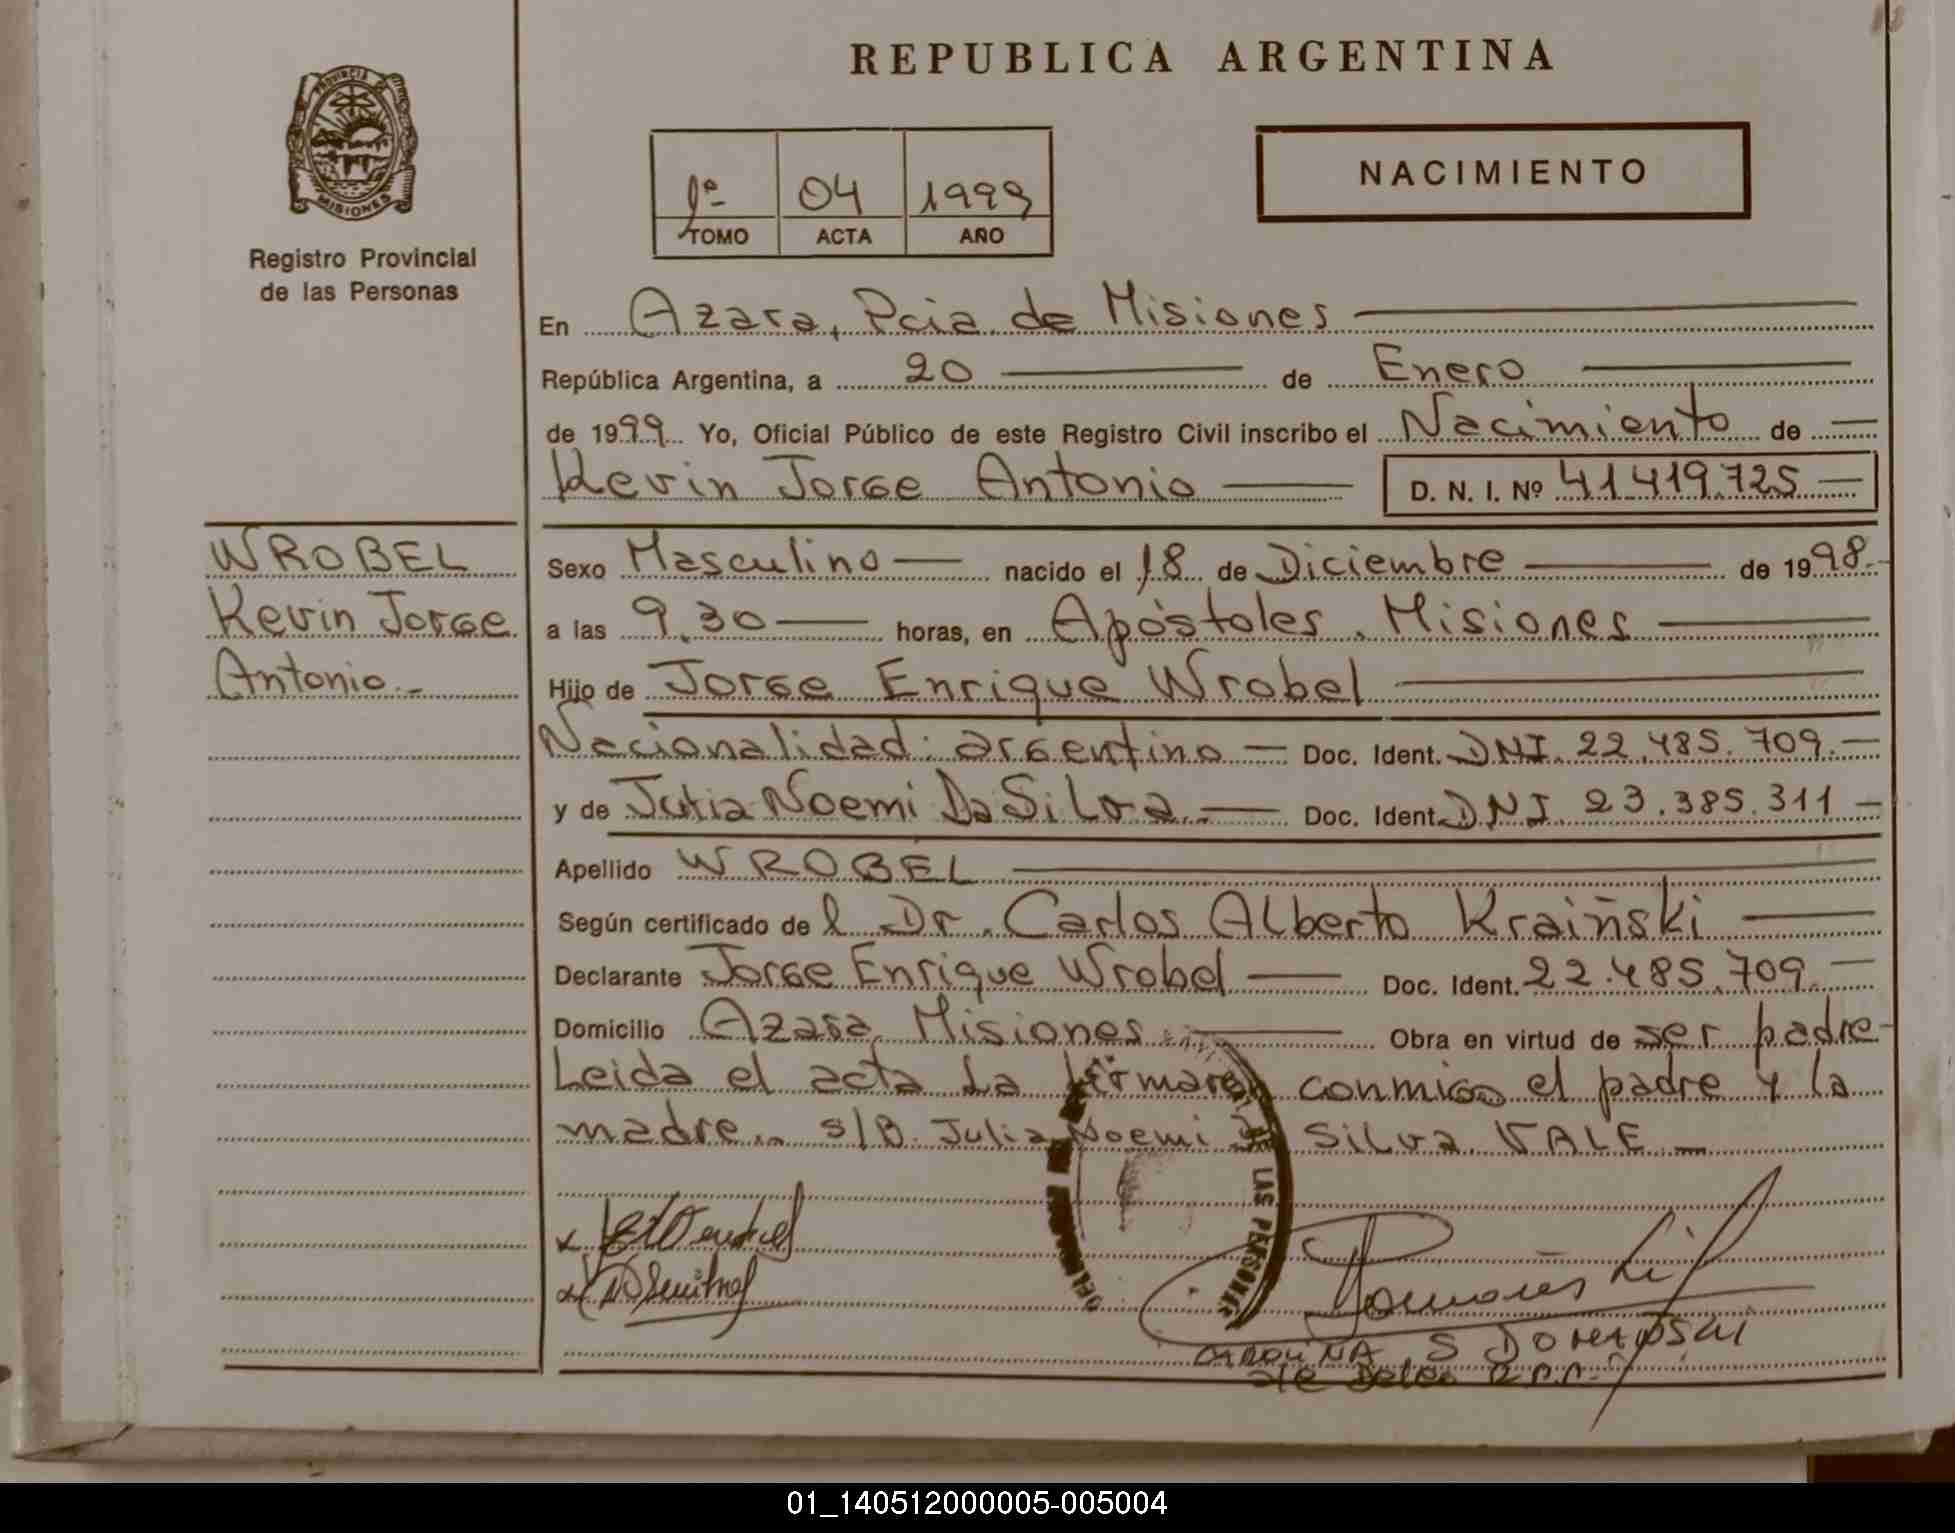 REPUBLICA ARGENTINA
PROVINCIA DE
MISIONES
Registro Provincial
de las Personas
1º 04 1999
TOMO ACTA AÑO
NACIMIENTO
En Azara, Pcia de Misiones
República Argentina, a 20 de Enero
de 1999 Yo, Oficial Público de este Registro Civil inscribo el Nacimiento de
Kevin Jorge Antonio D. N. I. Nº 41.419.725
WROBEL
Kevin Jorge
Antonio.-
Sexo Masculino nacido el 18 de Diciembre de 1998.-
a las 9.30 horas, en Apóstoles, Misiones
Hijo de Jorge Enrique Wrobel
Nacionalidad: argentino Doc. Ident. DNI. 22.485.709.
y de Julia Noemi Da Silva. Doc. Ident. DNI 23.385.311
Apellido WROBEL
Según certificado del Dr. Carlos Alberto Kraiñski
Declarante Jorge Enrique Wrobel Doc. Ident. 22.485.709.
Domicilio Azara, Misiones Obra en virtud de ser padre
Leida el acta La firmaren conmigo el padre y la
madre.. s/B. Julia Noemi Da Silva VALE
DEL LAS PERSONAS
S
01_140512000005-005004